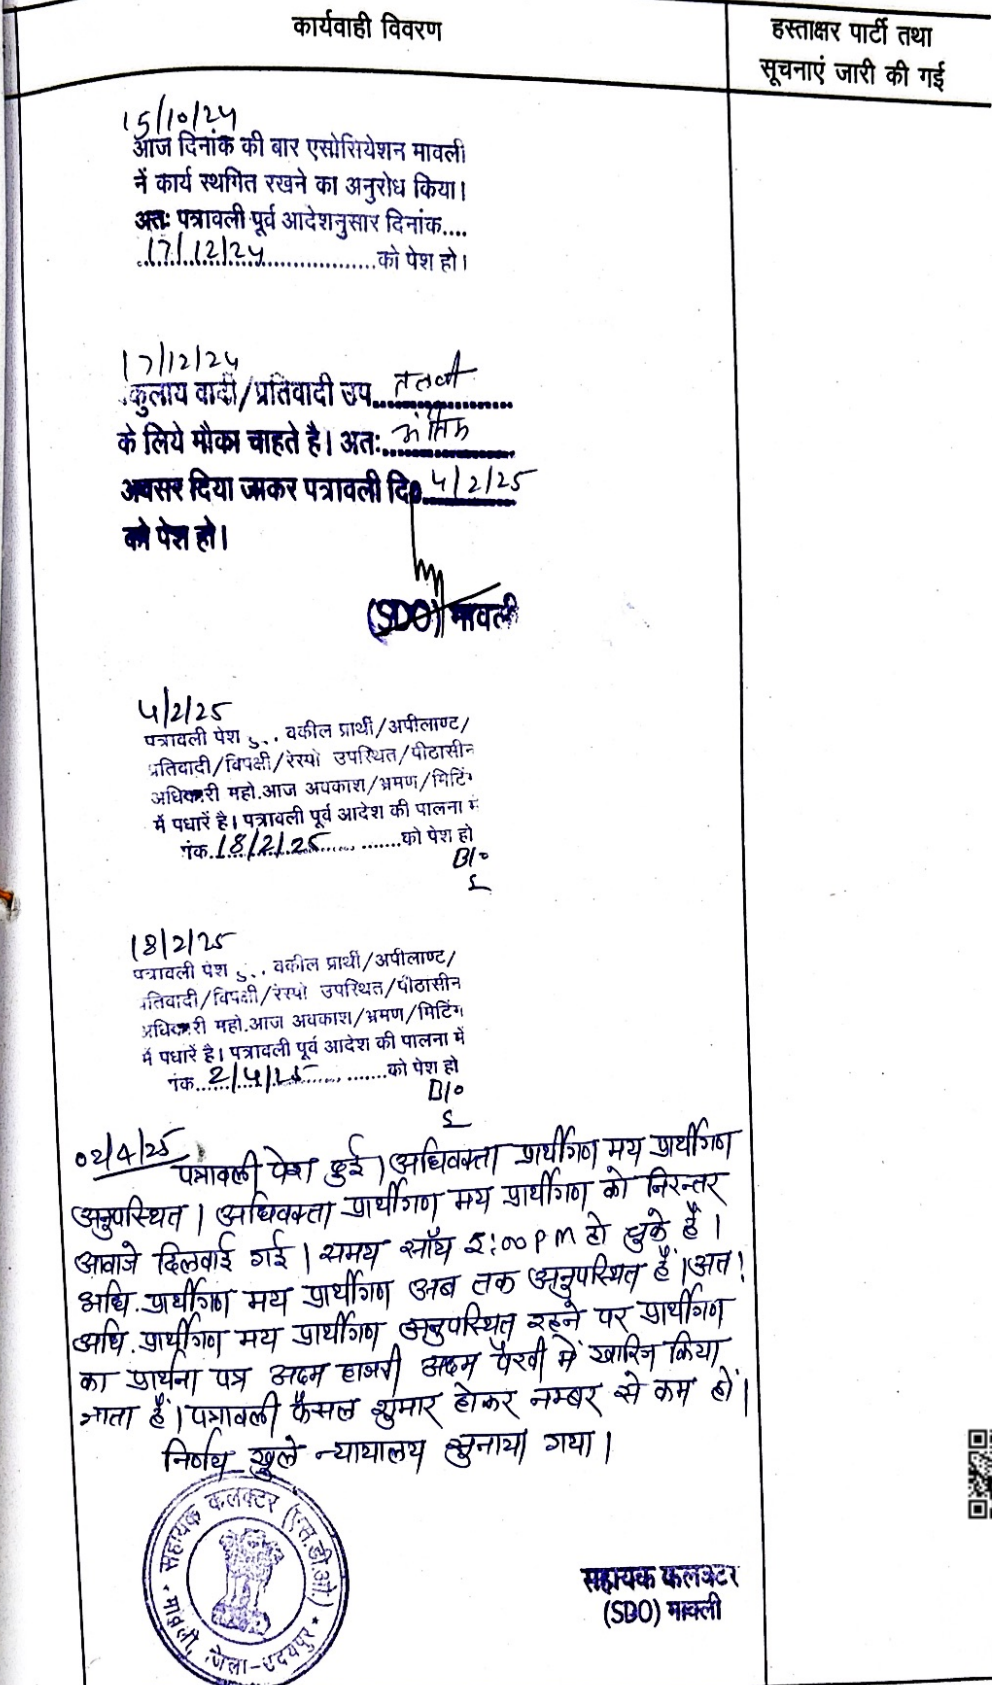 कार्यवाही विवरण
हस्ताक्षर पार्टी तथा
सूचनाएं जारी की गई
15/10/24
आज दिनांक की बार एसोसियेशन मावली
नें कार्य स्थगित रखने का अनुरोध किया।
अतः पत्रावली पूर्व आदेशनुसार दिनांक....
17/12/24 को पेश हो।
17/12/24
वादी/प्रतिवादी उप
के लिये मौका चाहते है। अतः अंतिम
अवसर दिया जाकर पत्रावली दि० 4/2/25
को पेश हो।
(SDO) मावली
4/2/25
पत्रावली पेश वकील प्रार्थी/अपीलाण्ट/
प्रतिवादी/विपक्षी/रेस्पो उपस्थित/पीठासीन
अधिकारी महो.आज अवकाश/भ्रमण/मिटिंग
में पधारें है। पत्रावली पूर्व आदेश की पालना में
18/2/25 को पेश हो
B/o
18/2/25
पत्रावली पेश वकील प्रार्थी/अपीलाण्ट/
प्रतिवादी/विपक्षी/रेस्पो उपस्थित/पीठासीन
अधिकारी महो.आज अवकाश/भ्रमण/मिटिंग
में पधारें है। पत्रावली पूर्व आदेश की पालना में
2/4/25 को पेश हो
B/o
02/4/25
पत्रावली पेश हुई। अधिवक्ता प्रार्थीगण मय प्रार्थीगण
अनुपस्थित। अधिवक्ता प्रार्थीगण मय प्रार्थीगण को निरन्तर
आवाजे दिलवाई गई। समय साँय 5:00 PM हो चुके है।
अधि. प्रार्थीगण मय प्रार्थीगण अब तक अनुपस्थित हैं। अतः
अधि. प्रार्थीगण मय प्रार्थीगण अनुपस्थित रहने पर प्रार्थीगण
का प्रार्थना पत्र अदम हाजरी अदम पैरवी में खारिज किया
जाता हैं। पत्रावली फैसल शुमार होकर नम्बर से कम हो।
निर्णय खुले न्यायालय सुनाया गया।
सहायक कलक्टर (एस.डी.ओ.)
मावली, जिला-उदयपुर
सहायक कलक्टर
(SDO) मावली